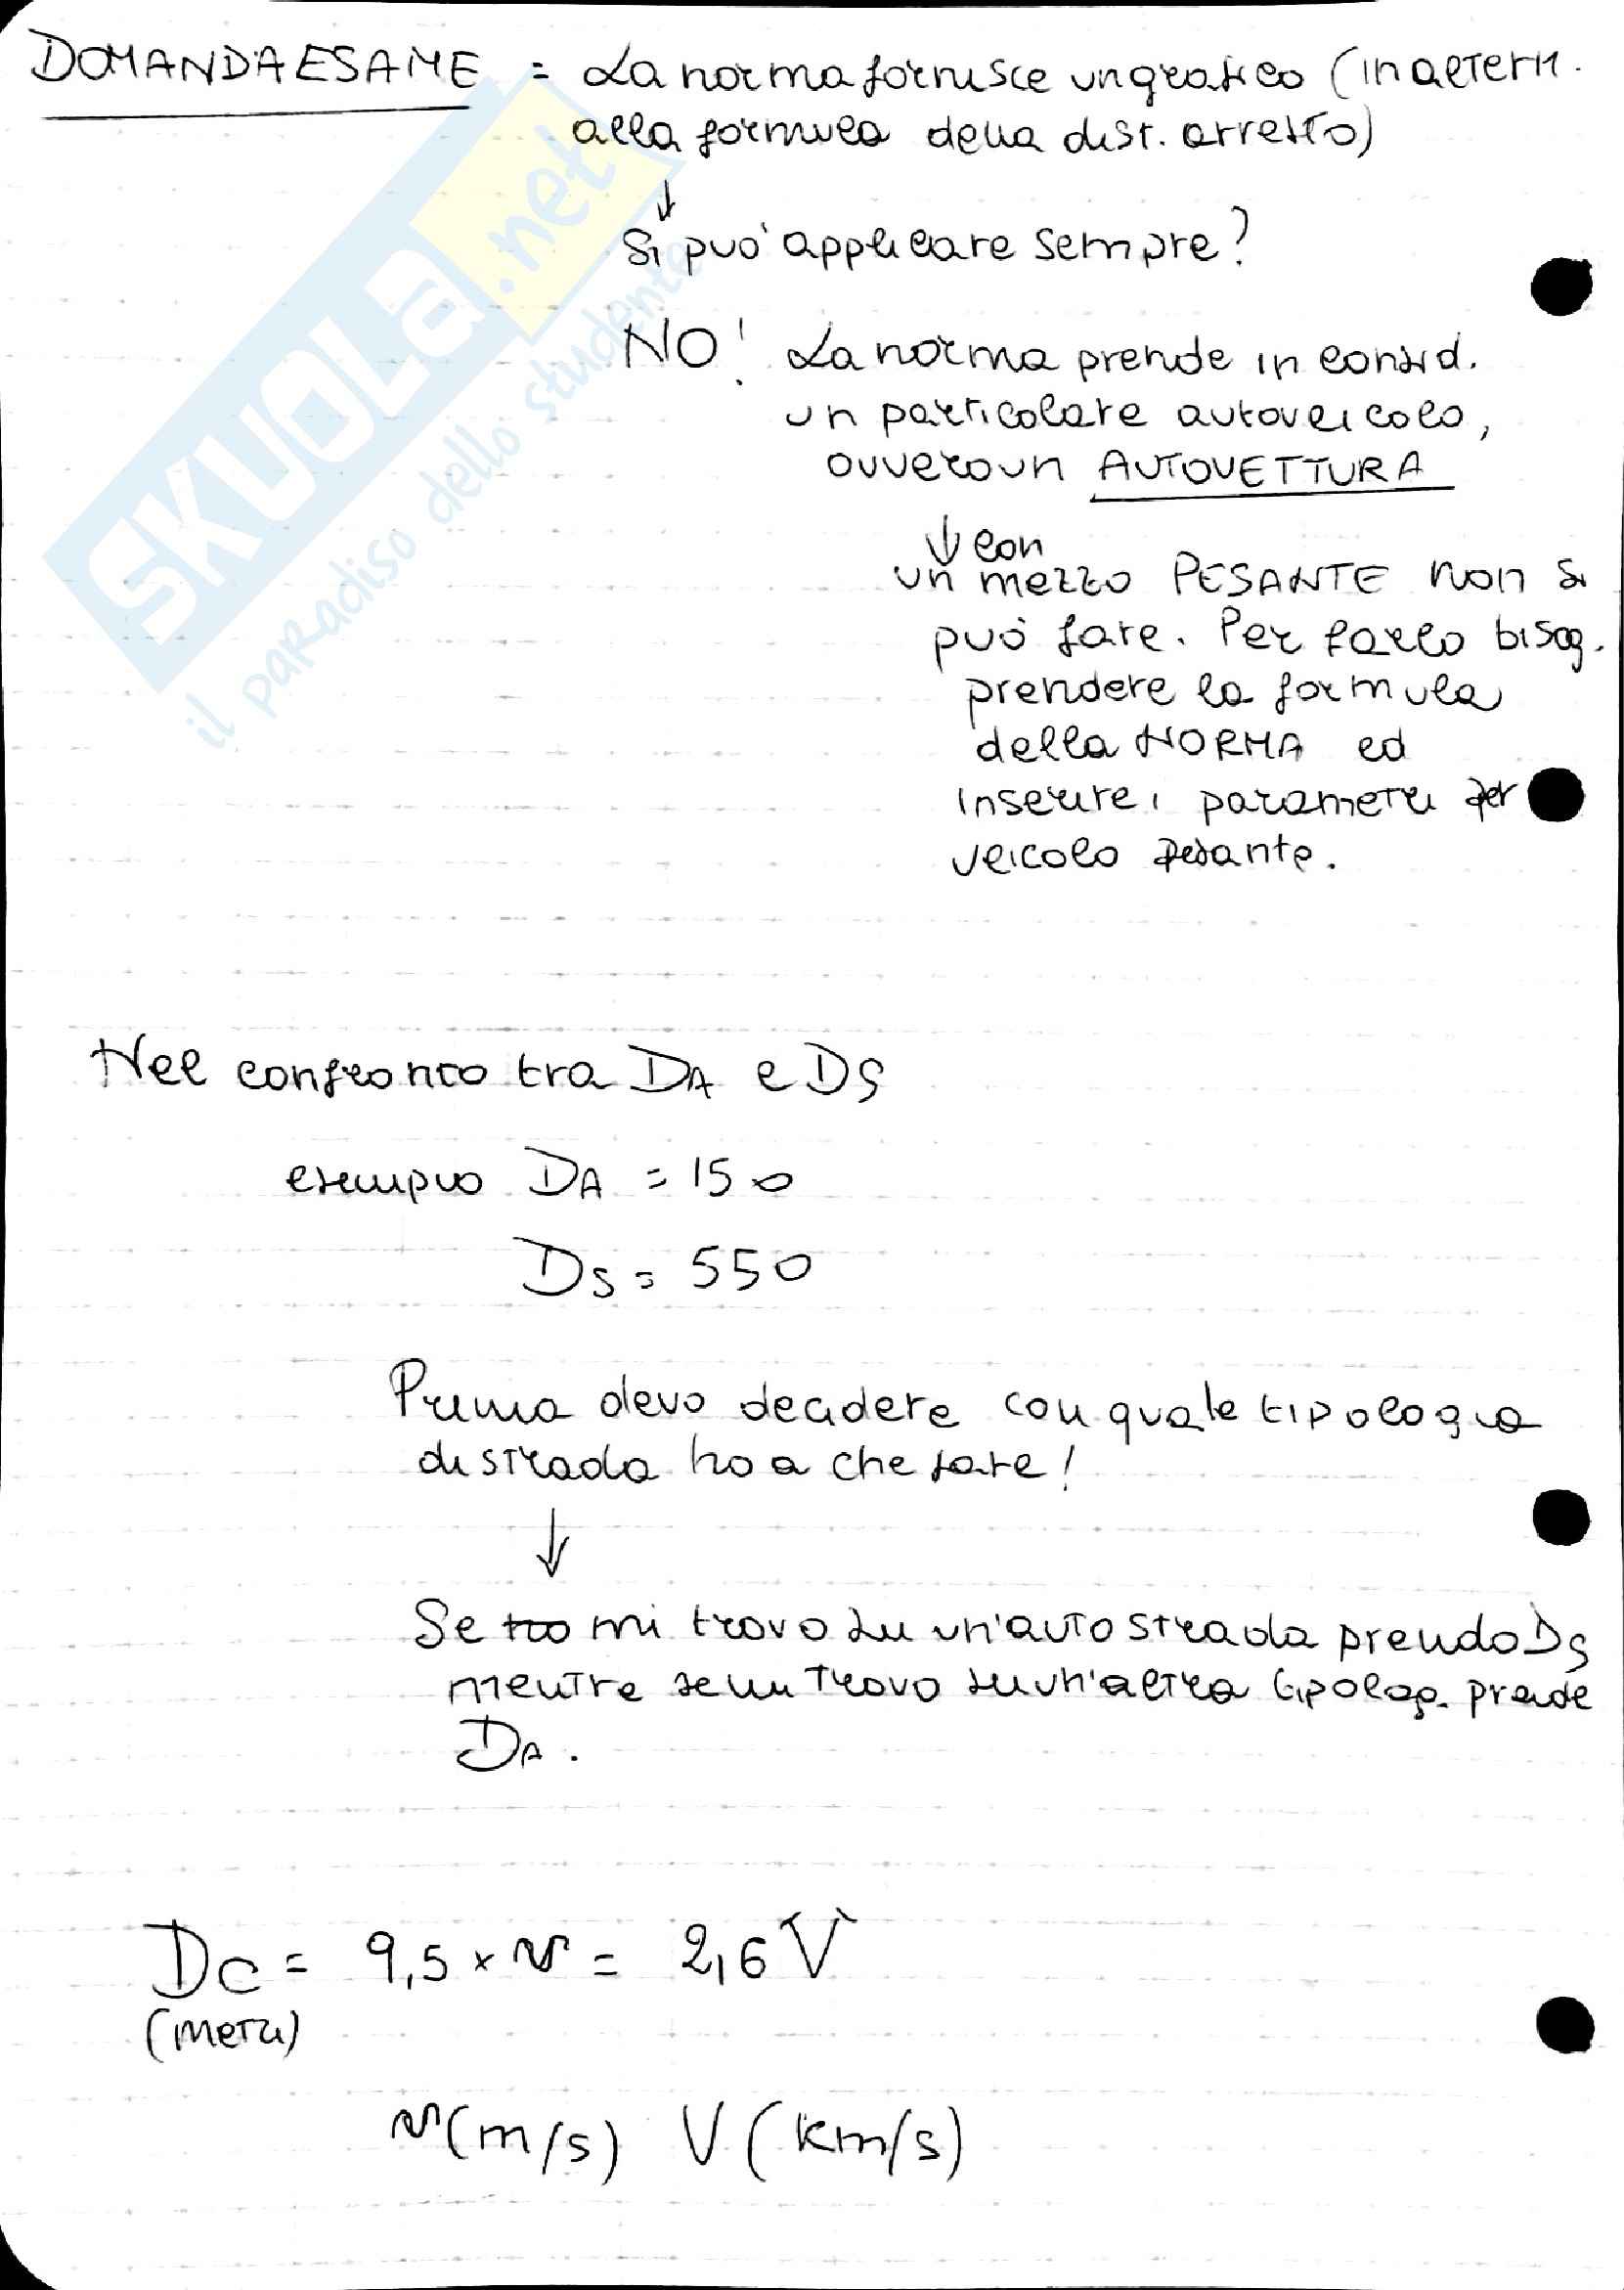 DOMANDA ESAME = La norma fornisce un grafico (in altern.
alla formula della dist. arresto)
↓
Si può applicare sempre?
NO! La norma prende in consid.
un particolare autoveicolo,
ovvero un AUTOVETTURA
↓ con
un mezzo PESANTE non si
può fare. Per farlo bisog.
prendere la formula
della NORMA ed
inserire i parametri per
veicolo pesante.
Nel confronto tra DA e DS
esempio DA = 150
DS = 550
Prima devo decidere con quale tipologia
di strada ho a che fare!
↓
Se mi trovo su un'autostrada prendo DS
mentre se mi trovo su un'altra tipolog. prende
DA.
DC = 9,5 × v = 2,6 V
(metri)
v (m/s) V (km/s)
SKUOLA.net
il paradiso dello studente